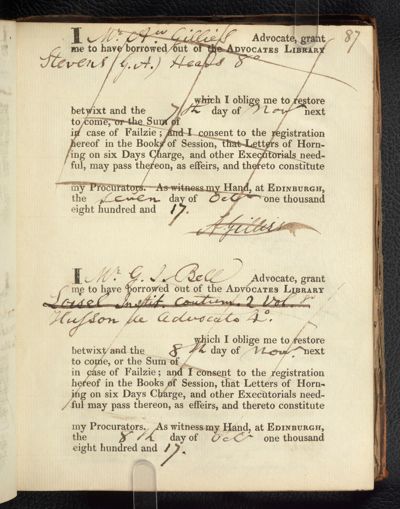 87
I Mr Aw Gillies Advocate, grant
me to have borrowed out of the ADVOCATES LIBRARY
Stevens (G. A.) Heads 8o
which I oblige me to restore
betwixt and the 7th day of Novr next
to come, or the Sum of
in case of Failzie; and I consent to the registration
hereof in the Books of Session, that Letters of Horn-
ing on six Days Charge, and other Executorials need-
ful, may pass thereon, as effeirs, and thereto constitute
my Procurators. As witness my Hand, at EDINBURGH,
the seven day of Octr one thousand
eight hundred and 17.
A Gillies
I Mr G. J. Bell Advocate, grant
me to have borrowed out of the ADVOCATES LIBRARY
Loisel Instit. coutum. 2 Vol. 8o
Husson de Advocato 4o.
which I oblige me to restore
betwixt and the 8th day of Novr next
to come, or the Sum of
in case of Failzie; and I consent to the registration
hereof in the Books of Session, that Letters of Horn-
ing on six Days Charge, and other Executorials need-
ful may pass thereon, as effeirs, and thereto constitute
my Procurators. As witness my Hand, at EDINBURGH,
the 8th day of Octr one thousand
eight hundred and 17.